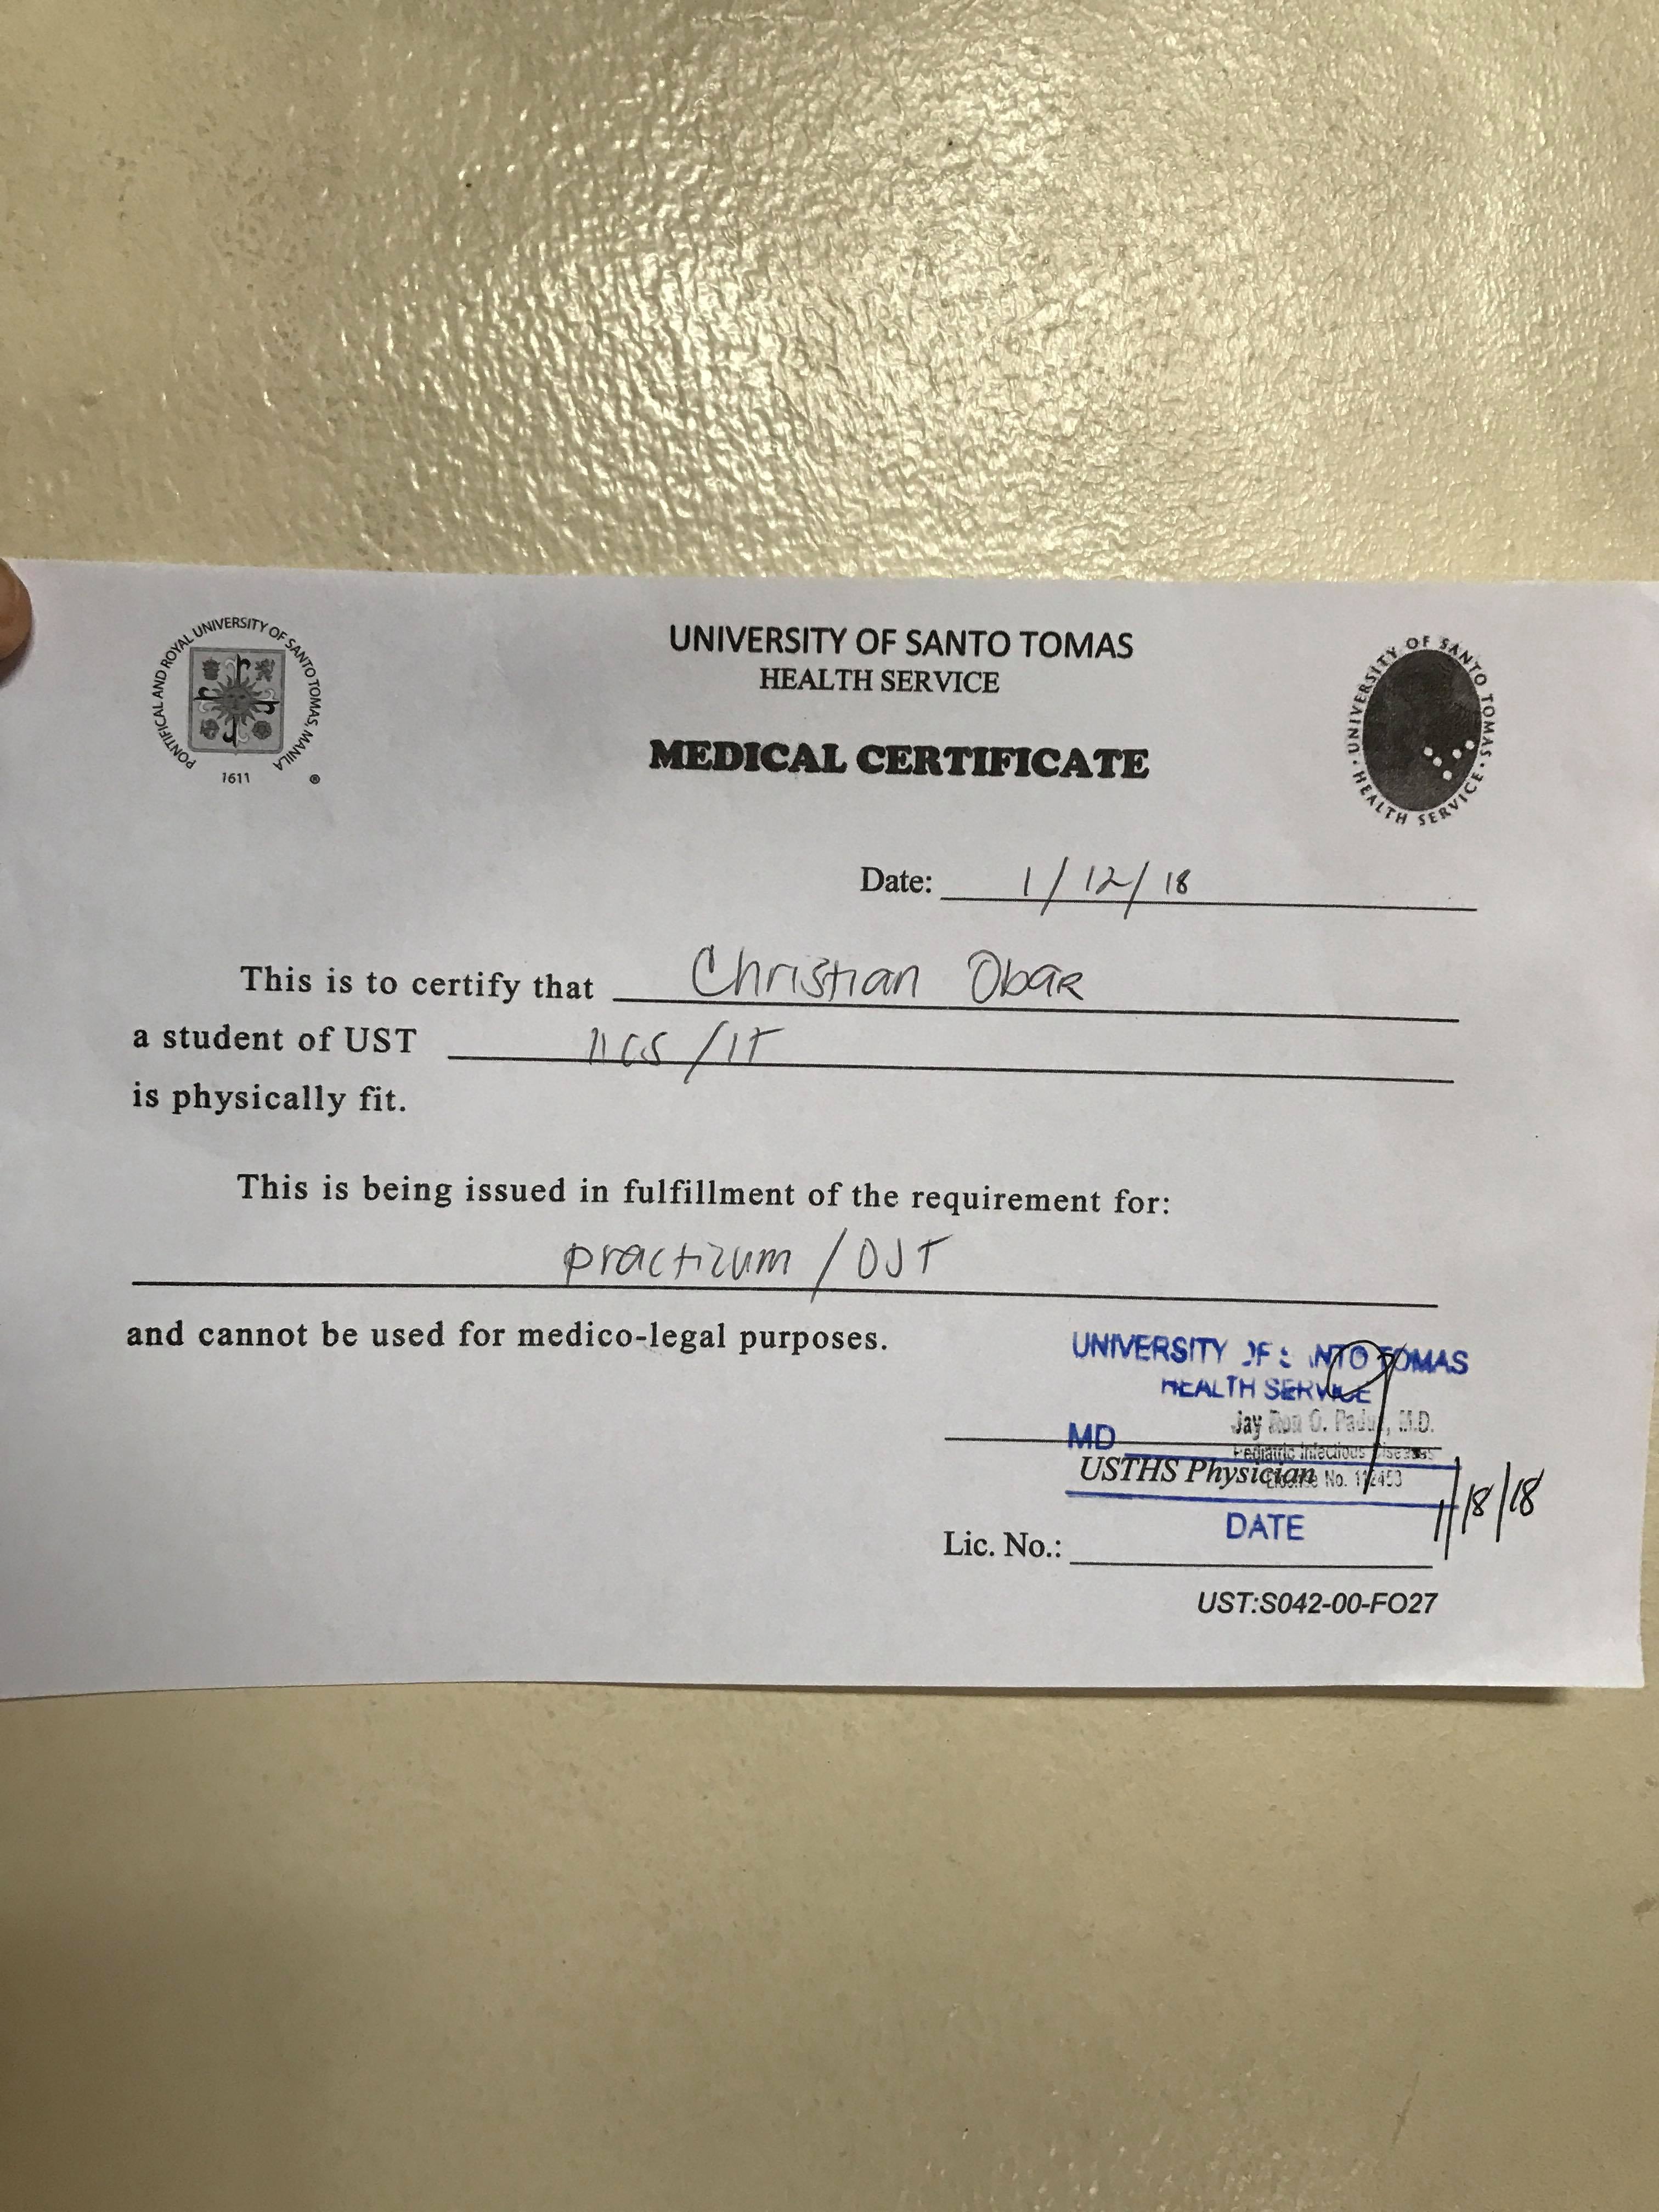 PONTIFICAL AND ROYAL UNIVERSITY OF SANTO TOMAS, MANILA
1611 ®
UNIVERSITY OF SANTO TOMAS
HEALTH SERVICE
MEDICAL CERTIFICATE
UNIVERSITY OF SANTO TOMAS · HEALTH SERVICE ·
Date: 1/12/18
This is to certify that Christian Obar
a student of UST IICS/IT
is physically fit.
This is being issued in fulfillment of the requirement for:
practicum/OJT
and cannot be used for medico-legal purposes.
UNIVERSITY OF SANTO TOMAS
HEALTH SERVICE
Jay Ron O. M.D.
MD
Pediatric Infectious Diseases
USTHS Physician
License No.
1/18/18
DATE
Lic. No.:
UST:S042-00-FO27